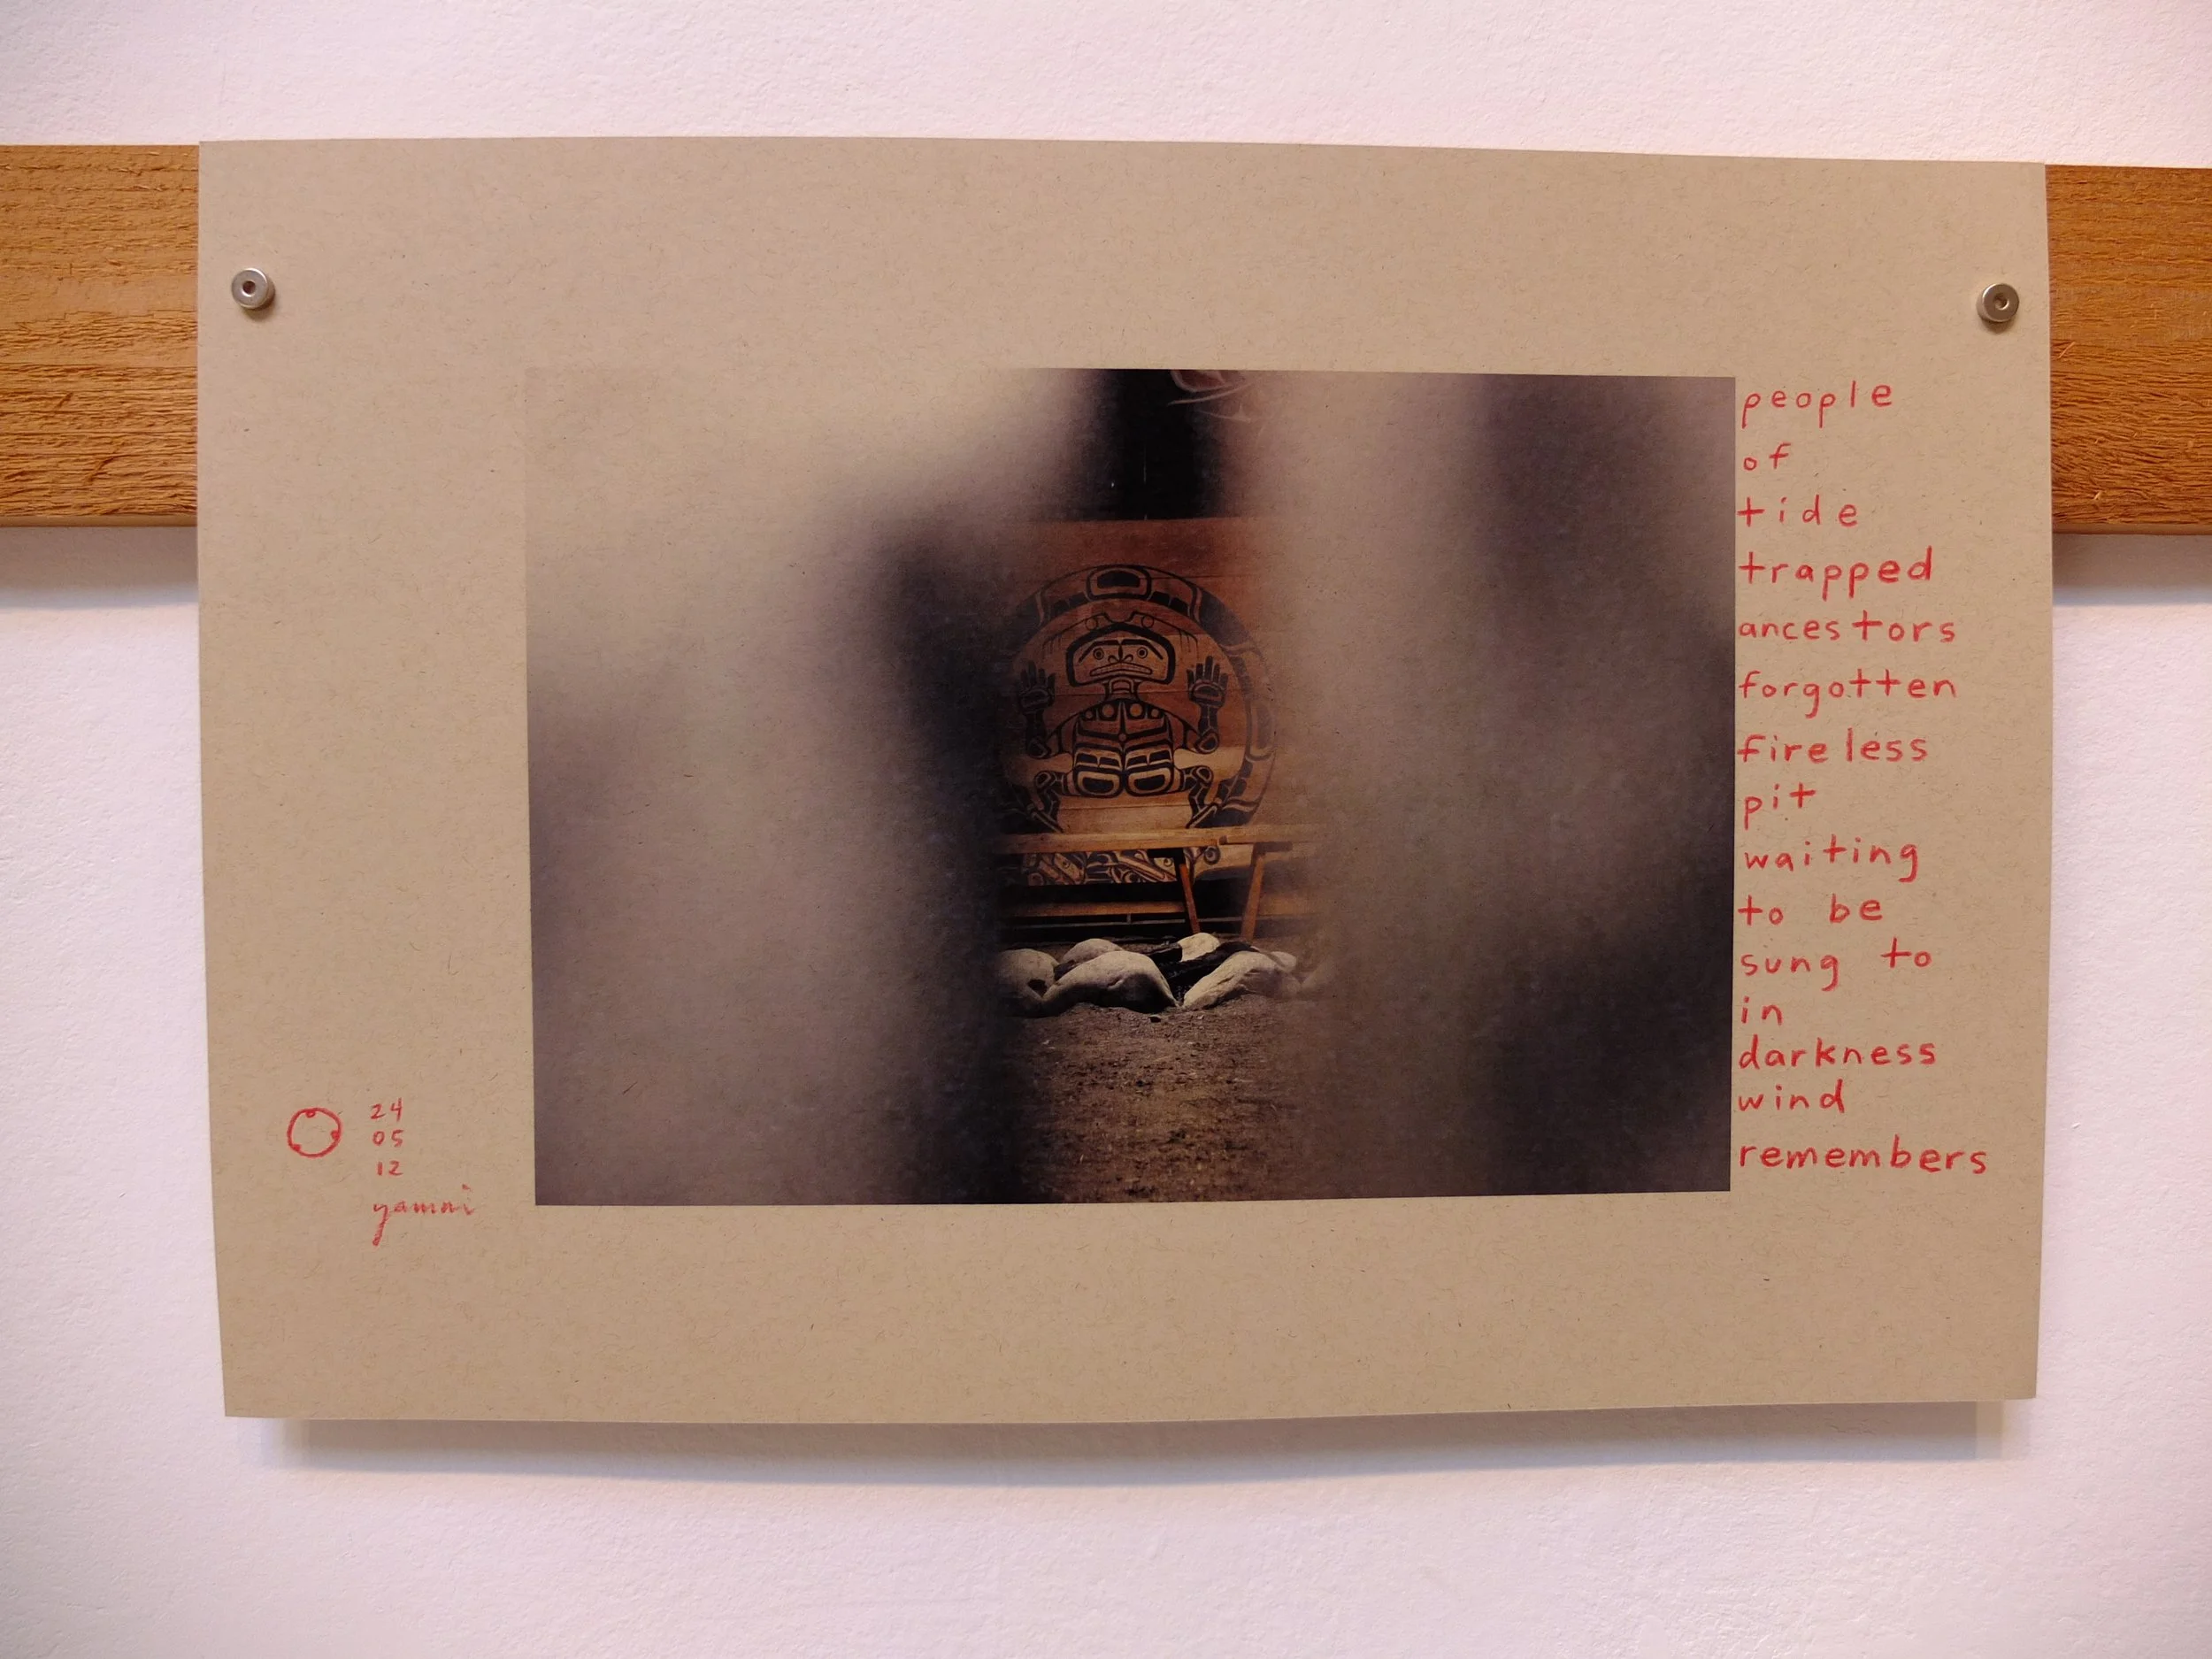 people
of
tide
trapped
ancestors
forgotten
fireless
pit
waiting
to be
sung to
in
darkness
wind
remembers
24
05
12
yamni